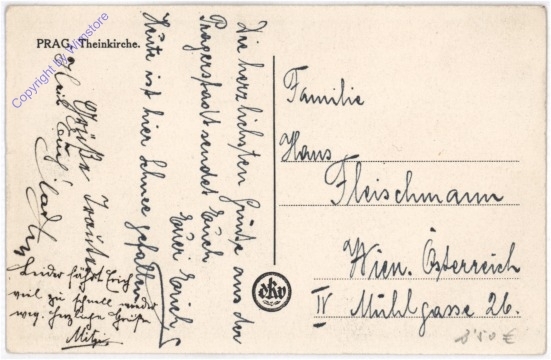 PRAG, Theinkirche.
Copyright by Wimstore
Die herzlichsten Grüße aus der
Pragerstadt sendet Euch
Euer Erich
Heute ist hier Schnee gefallen
Grüße Traute
Leider fährt Erich
viel zu schnell wieder
weg. Herzliche Grüße
Mitzi
Familie
Hans
Fleischmann
Wien. Österreich
IV Mühlgasse 26.
ekv
3'50 €